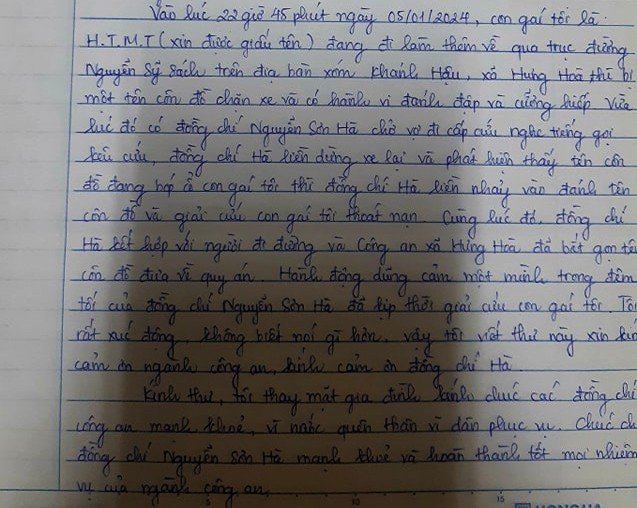 Vào lúc 22 giờ 45 phút ngày 05/01/2024, con gái tôi là
H.T.M.T (xin được giấu tên) đang đi làm thêm về qua trục đường
Nguyễn Sỹ Sách trên địa bàn xóm Khánh Hậu, xã Hưng Hoà thì bị
một tên côn đồ chặn xe và có hành vi đánh đập và cưỡng hiếp. Vừa
lúc đó có đồng chí Nguyễn Sơn Hà chở vợ đi cấp cứu nghe tiếng gọi
kêu cứu, đồng chí Hà liền dừng xe lại và phát hiện thấy tên côn
đồ đang bóp cổ con gái tôi thì đồng chí Hà liền nhảy vào đánh tên
côn đồ và giải cứu con gái tôi thoát nạn. Cùng lúc đó, đồng chí
Hà kết hợp với người đi đường và Công an xã Hưng Hoà đã bắt gọn tên
côn đồ đưa về quy án. Hành động dũng cảm một mình trong đêm
tối của đồng chí Nguyễn Sơn Hà đã kịp thời giải cứu con gái tôi. Tôi
rất xúc động, không biết nói gì hơn, vậy tôi viết thư này xin kín
cảm ơn ngành công an, kính cảm ơn đồng chí Hà.
Kính thư, tôi thay mặt gia đình kính chúc các đồng chí
công an mạnh khoẻ, vì nước quên thân vì dân phục vụ. Chúc
đồng chí Nguyễn Sơn Hà mạnh khoẻ và hoàn thành tốt mọi nhiệm
vụ của ngành công an.
5 10 15
HONGHA